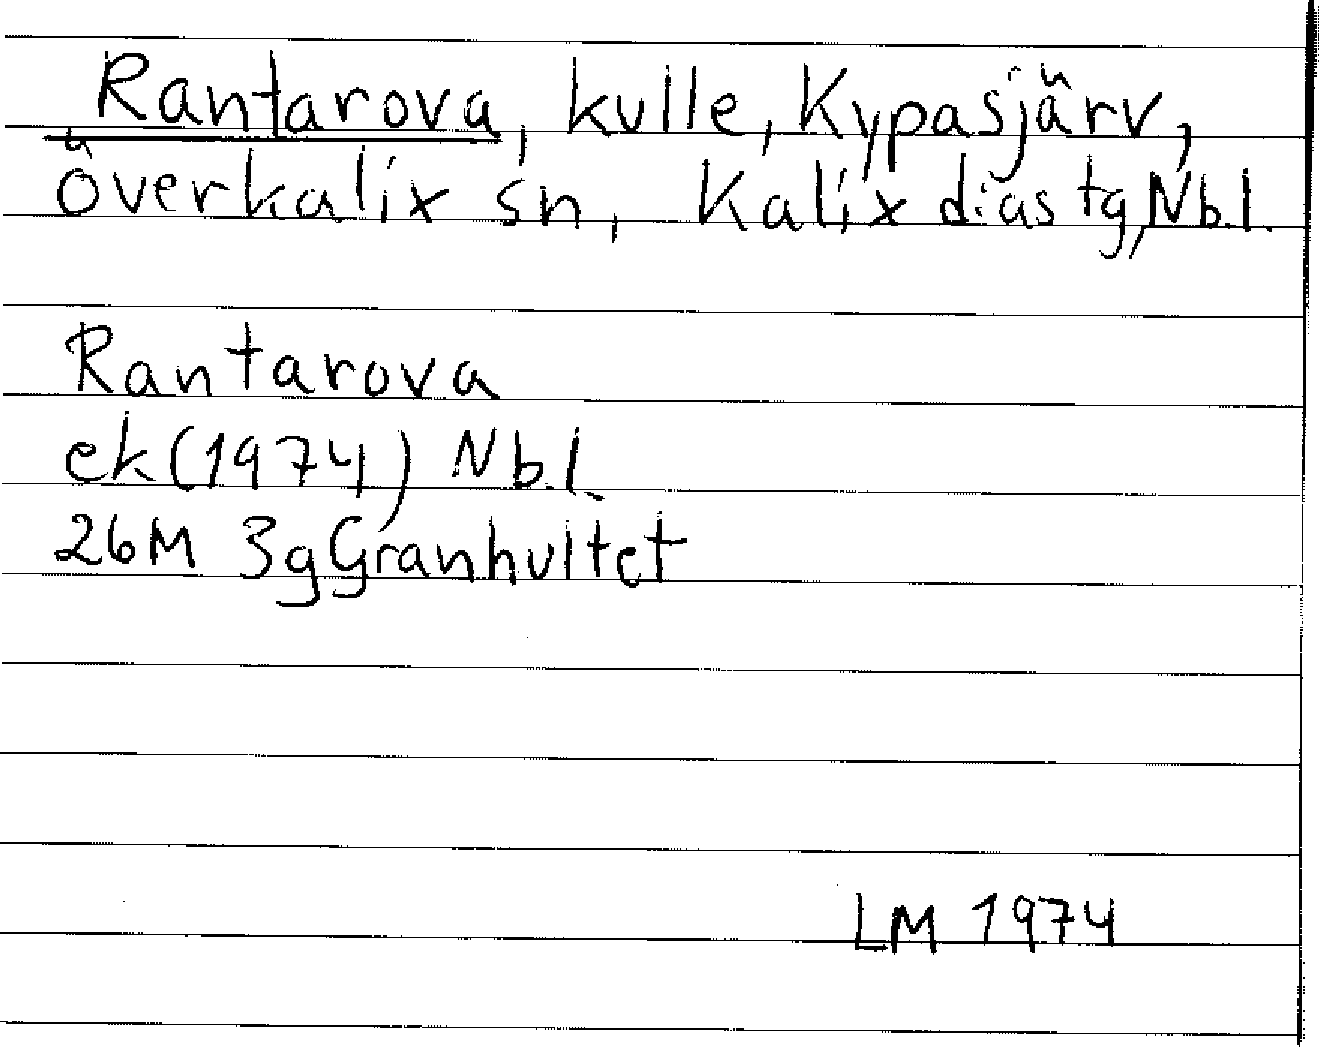 Rantarova, kulle, Kypasjärv,
Överkalix sn, Kalix dlastg, Nb.l.
Rantarova
ek (1974) Nb.l.
26M 3g Granhultet
LM 1974